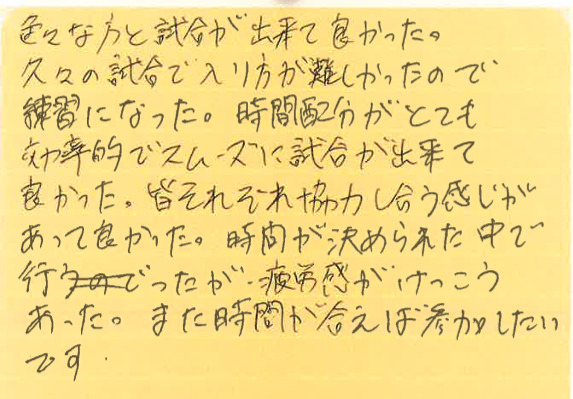 色々な方と試合が出来て良かった。
久々の試合で入り方が難しかったので
練習になった。時間配分がとても
効率的でスムーズに試合が出来て
良かった。皆それぞれ協力し合う感じが
あって良かった。時間が決められた中で
行だったが、疲労感がけっこう
あった。また時間が合えば参加したい
です.